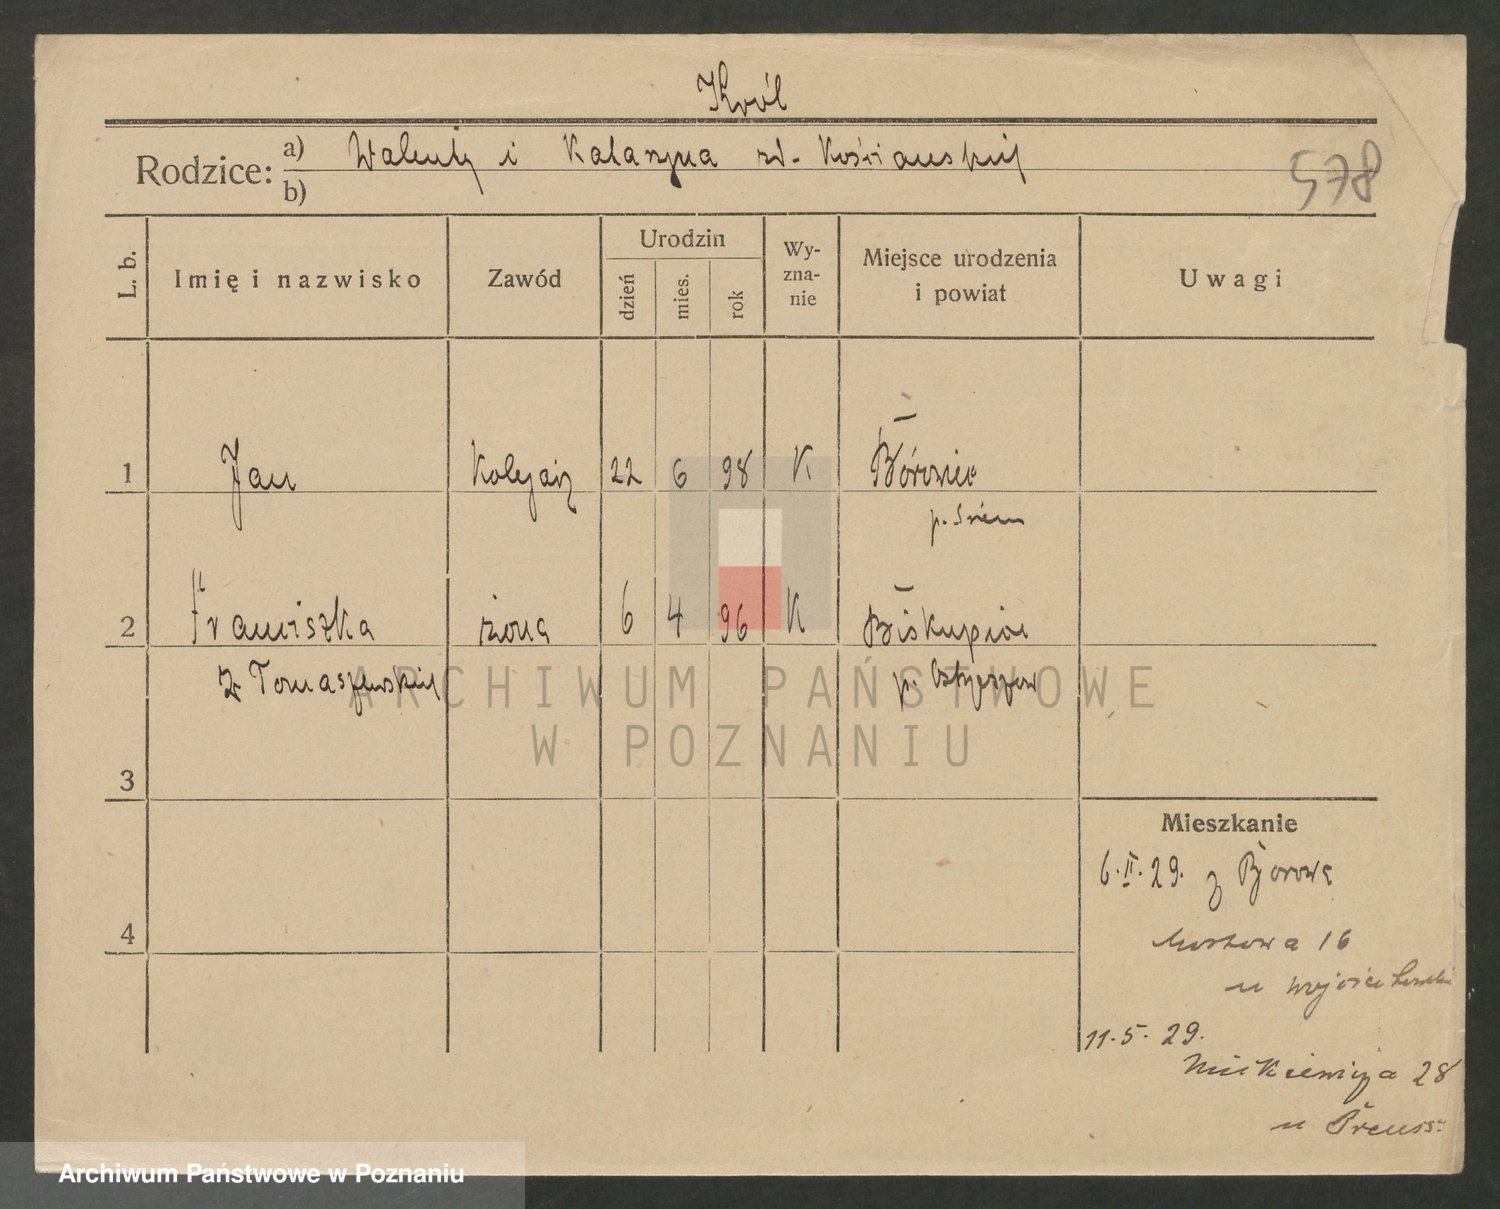 Król
Rodzice: a) Walenty i Katarzyna zd. Kościańskich
b)
578
L. b.
Imię i nazwisko
Zawód
Urodzin
dzień
mies.
rok
Wy-
zna-
nie
Miejsce urodzenia
i powiat
Uwagi
1 Jan Kolejarz 22 6 98 K Bórowiec
p. Śrem
2 Franciszka żona 6 4 96 K Biskupice
z Tomaszewskich p.
ARCHIWUM PAŃSTWOWE
W POZNANIU
3
Mieszkanie
6.II.29. z
4
Mostowa 16
u
11.5.29.
Mickiewicza 28
u Preuss
Archiwum Państwowe w Poznaniu